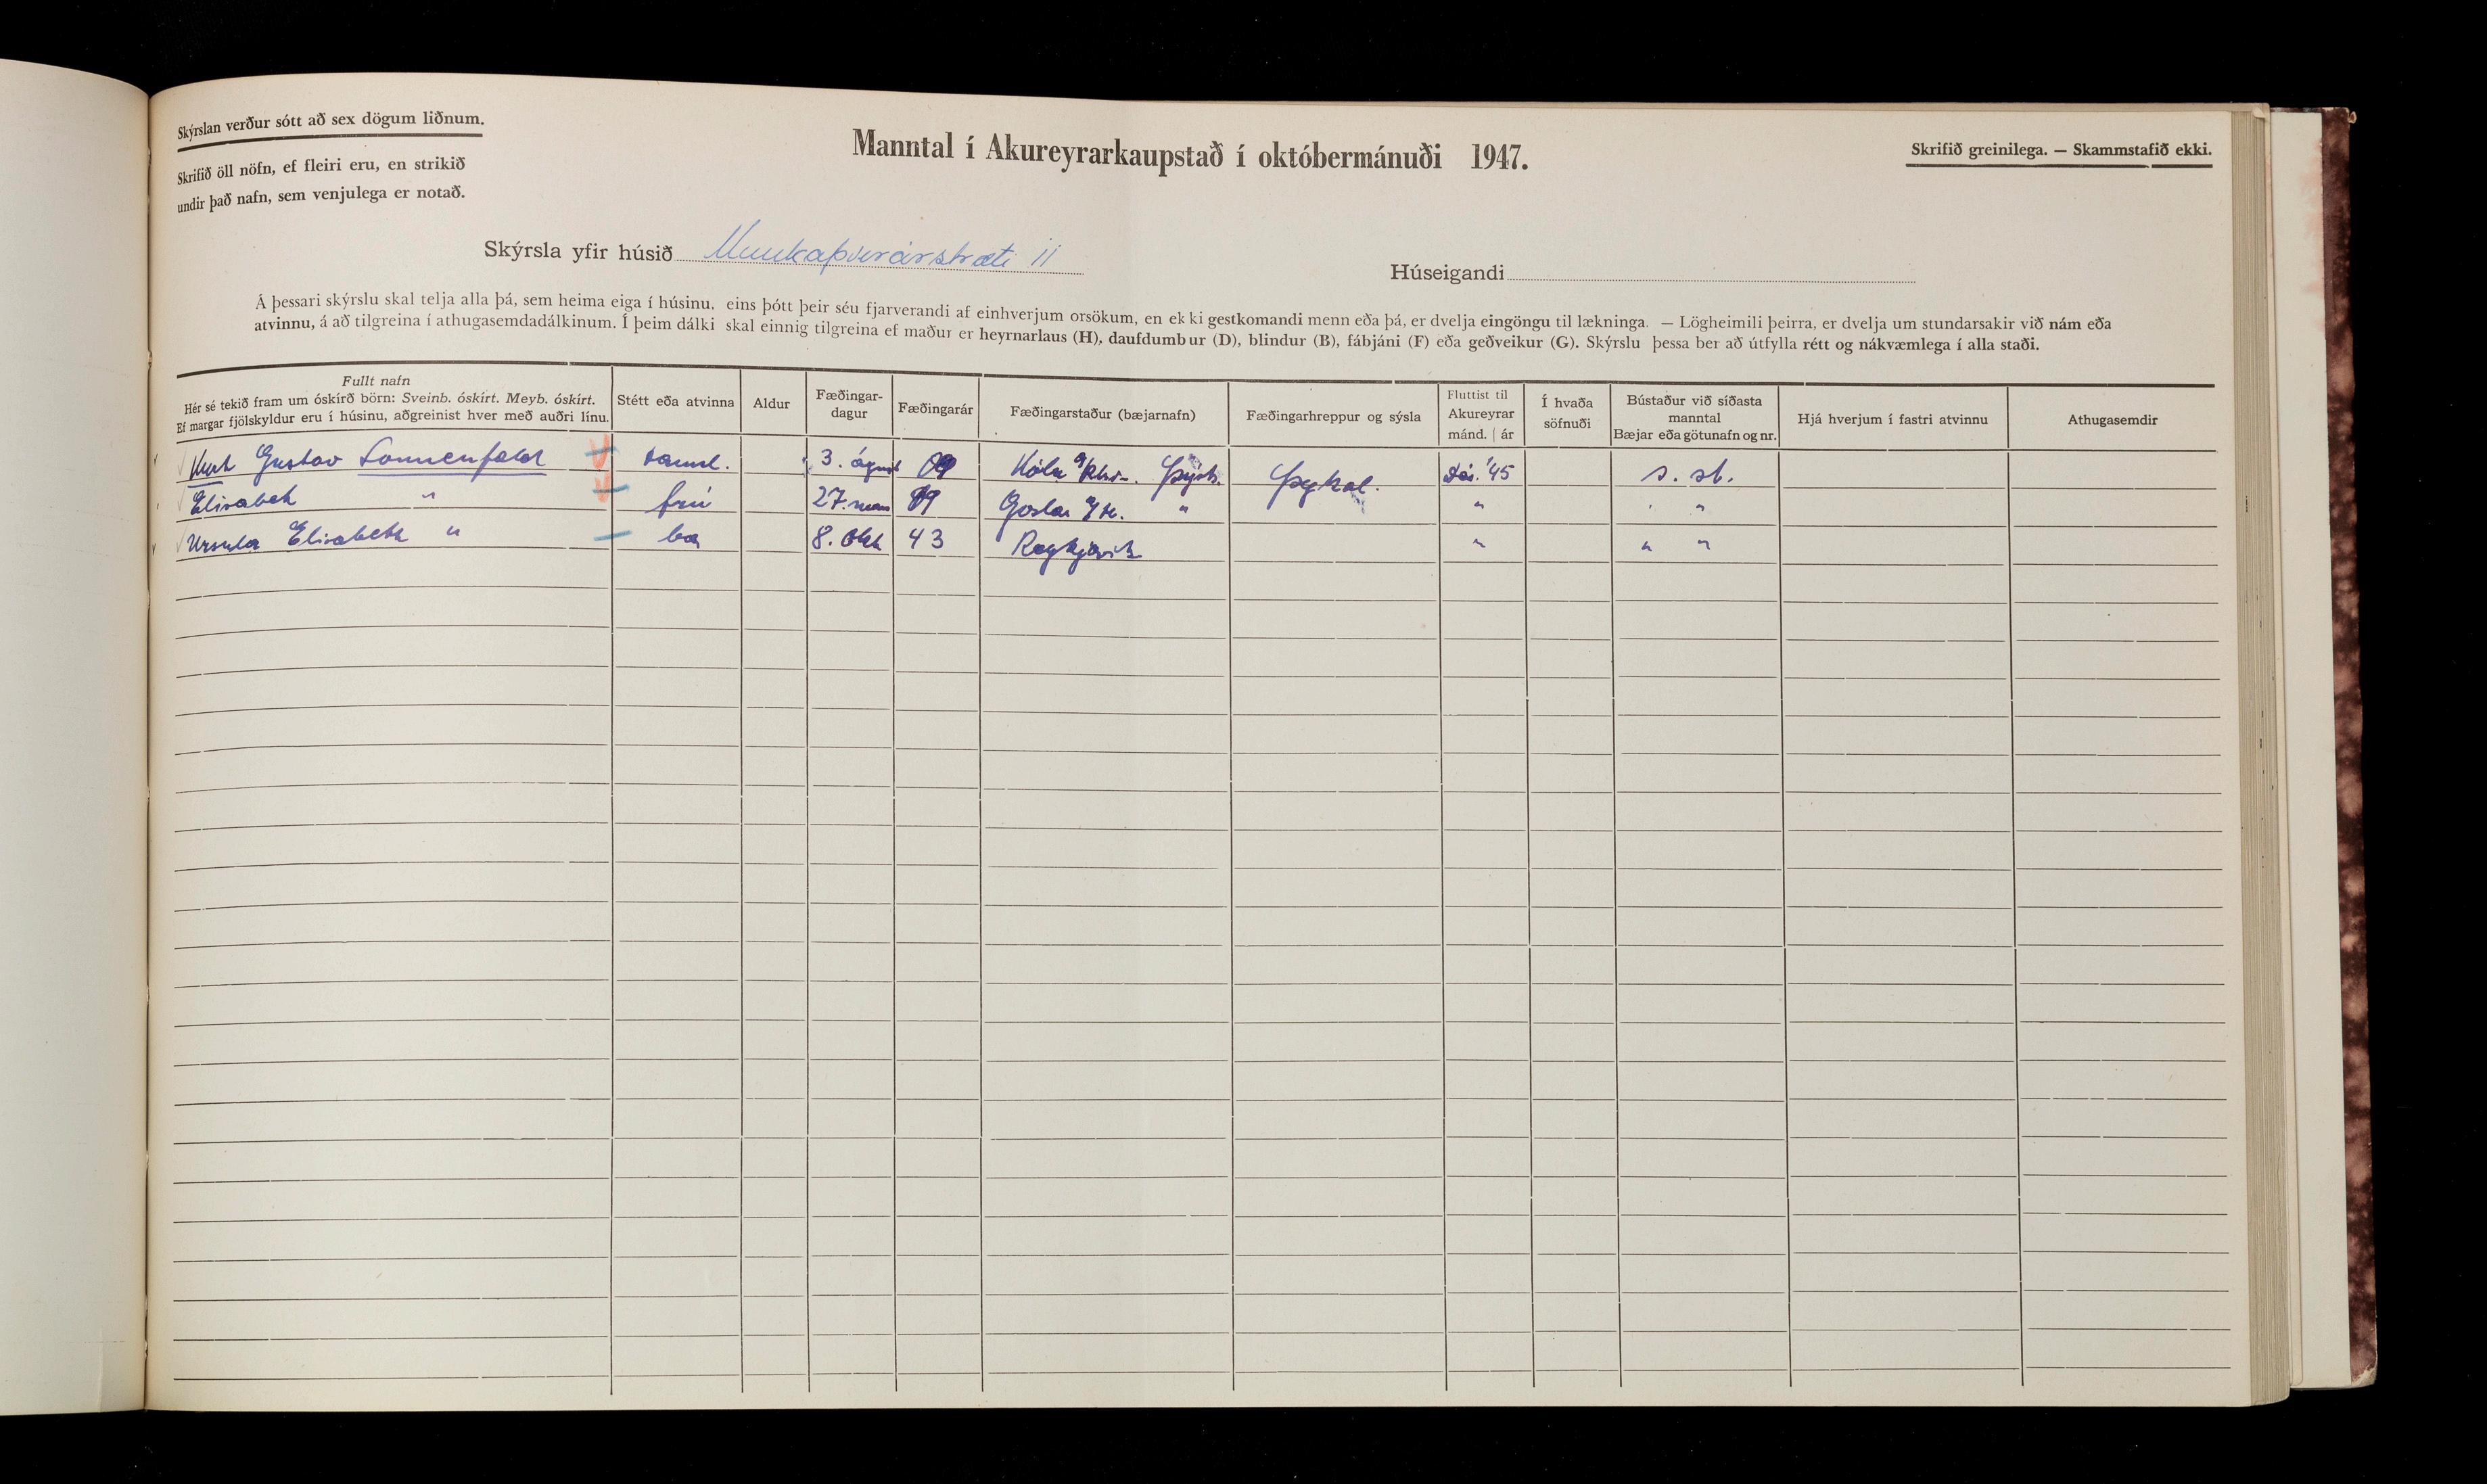 Skýrslan verður sótt að sex dögum liðnum.
Skrifið öll nöfn, ef fleiri eru, en strikið
undir það nafn, sem venjulega er notað.
Manntal í Akureyrarkaupstað í októbermánuði 1947.
Skrifið greinilega. — Skammstafið ekki.
Skýrsla yfir húsið Munkaþverárstræti 11
Húseigandi
Á þessari skýrslu skal telja alla þá, sem heima eiga í húsinu, eins þótt þeir séu fjarverandi af einhverjum orsökum, en ekki gestkomandi menn eða þá, er dvelja eingöngu til lækninga. — Lögheimili þeirra, er dvelja um stundarsakir við nám eða
atvinnu, á að tilgreina í athugasemdadálkinum. Í þeim dálki skal einnig tilgreina ef maður er heyrnarlaus (H), daufdumbur (D), blindur (B), fábjáni (F) eða geðveikur (G). Skýrslu þessa ber að útfylla rétt og nákvæmlega í alla staði.
Fullt nafn
Hér sé tekið fram um óskírð börn: Sveinb. óskírt. Meyb. óskírt.
Ef margar fjölskyldur eru í húsinu, aðgreinist hver með auðri línu.
Stétt eða atvinna
Aldur
Fæðingar-
dagur
Fæðingarár
Fæðingarstaður (bæjarnafn)
Fæðingarhreppur og sýsla
Fluttist til
Akureyrar
mánd. | ár
Í hvaða
söfnuði
Bústaður við síðasta
manntal
Bæjar eða götunafn og nr.
Hjá hverjum í fastri atvinnu
Athugasemdir
Kurt Gustav Sonnenfeld tannl. 3. ágúst 09 Köln a/Rhein. Þýsk. Þyskal. Des. '45 s. st.
Elisabet " frú 27. 09 Goslar " " " "
Ursula Elisabeth " ba 8. Okt 43 Reykjavik " " "